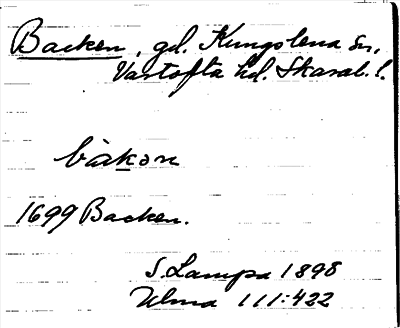 Backen, gd. Kungslena sn,
Vartofta hd. Skarab. l.
bàkən
1699 Backen.
S. Lampa 1898
Ulma 111:422